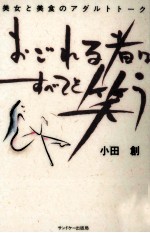 美女と美食のアダルトトーク
おごれる者は
すべてを
笑う
小田 創
サンドケー出版局